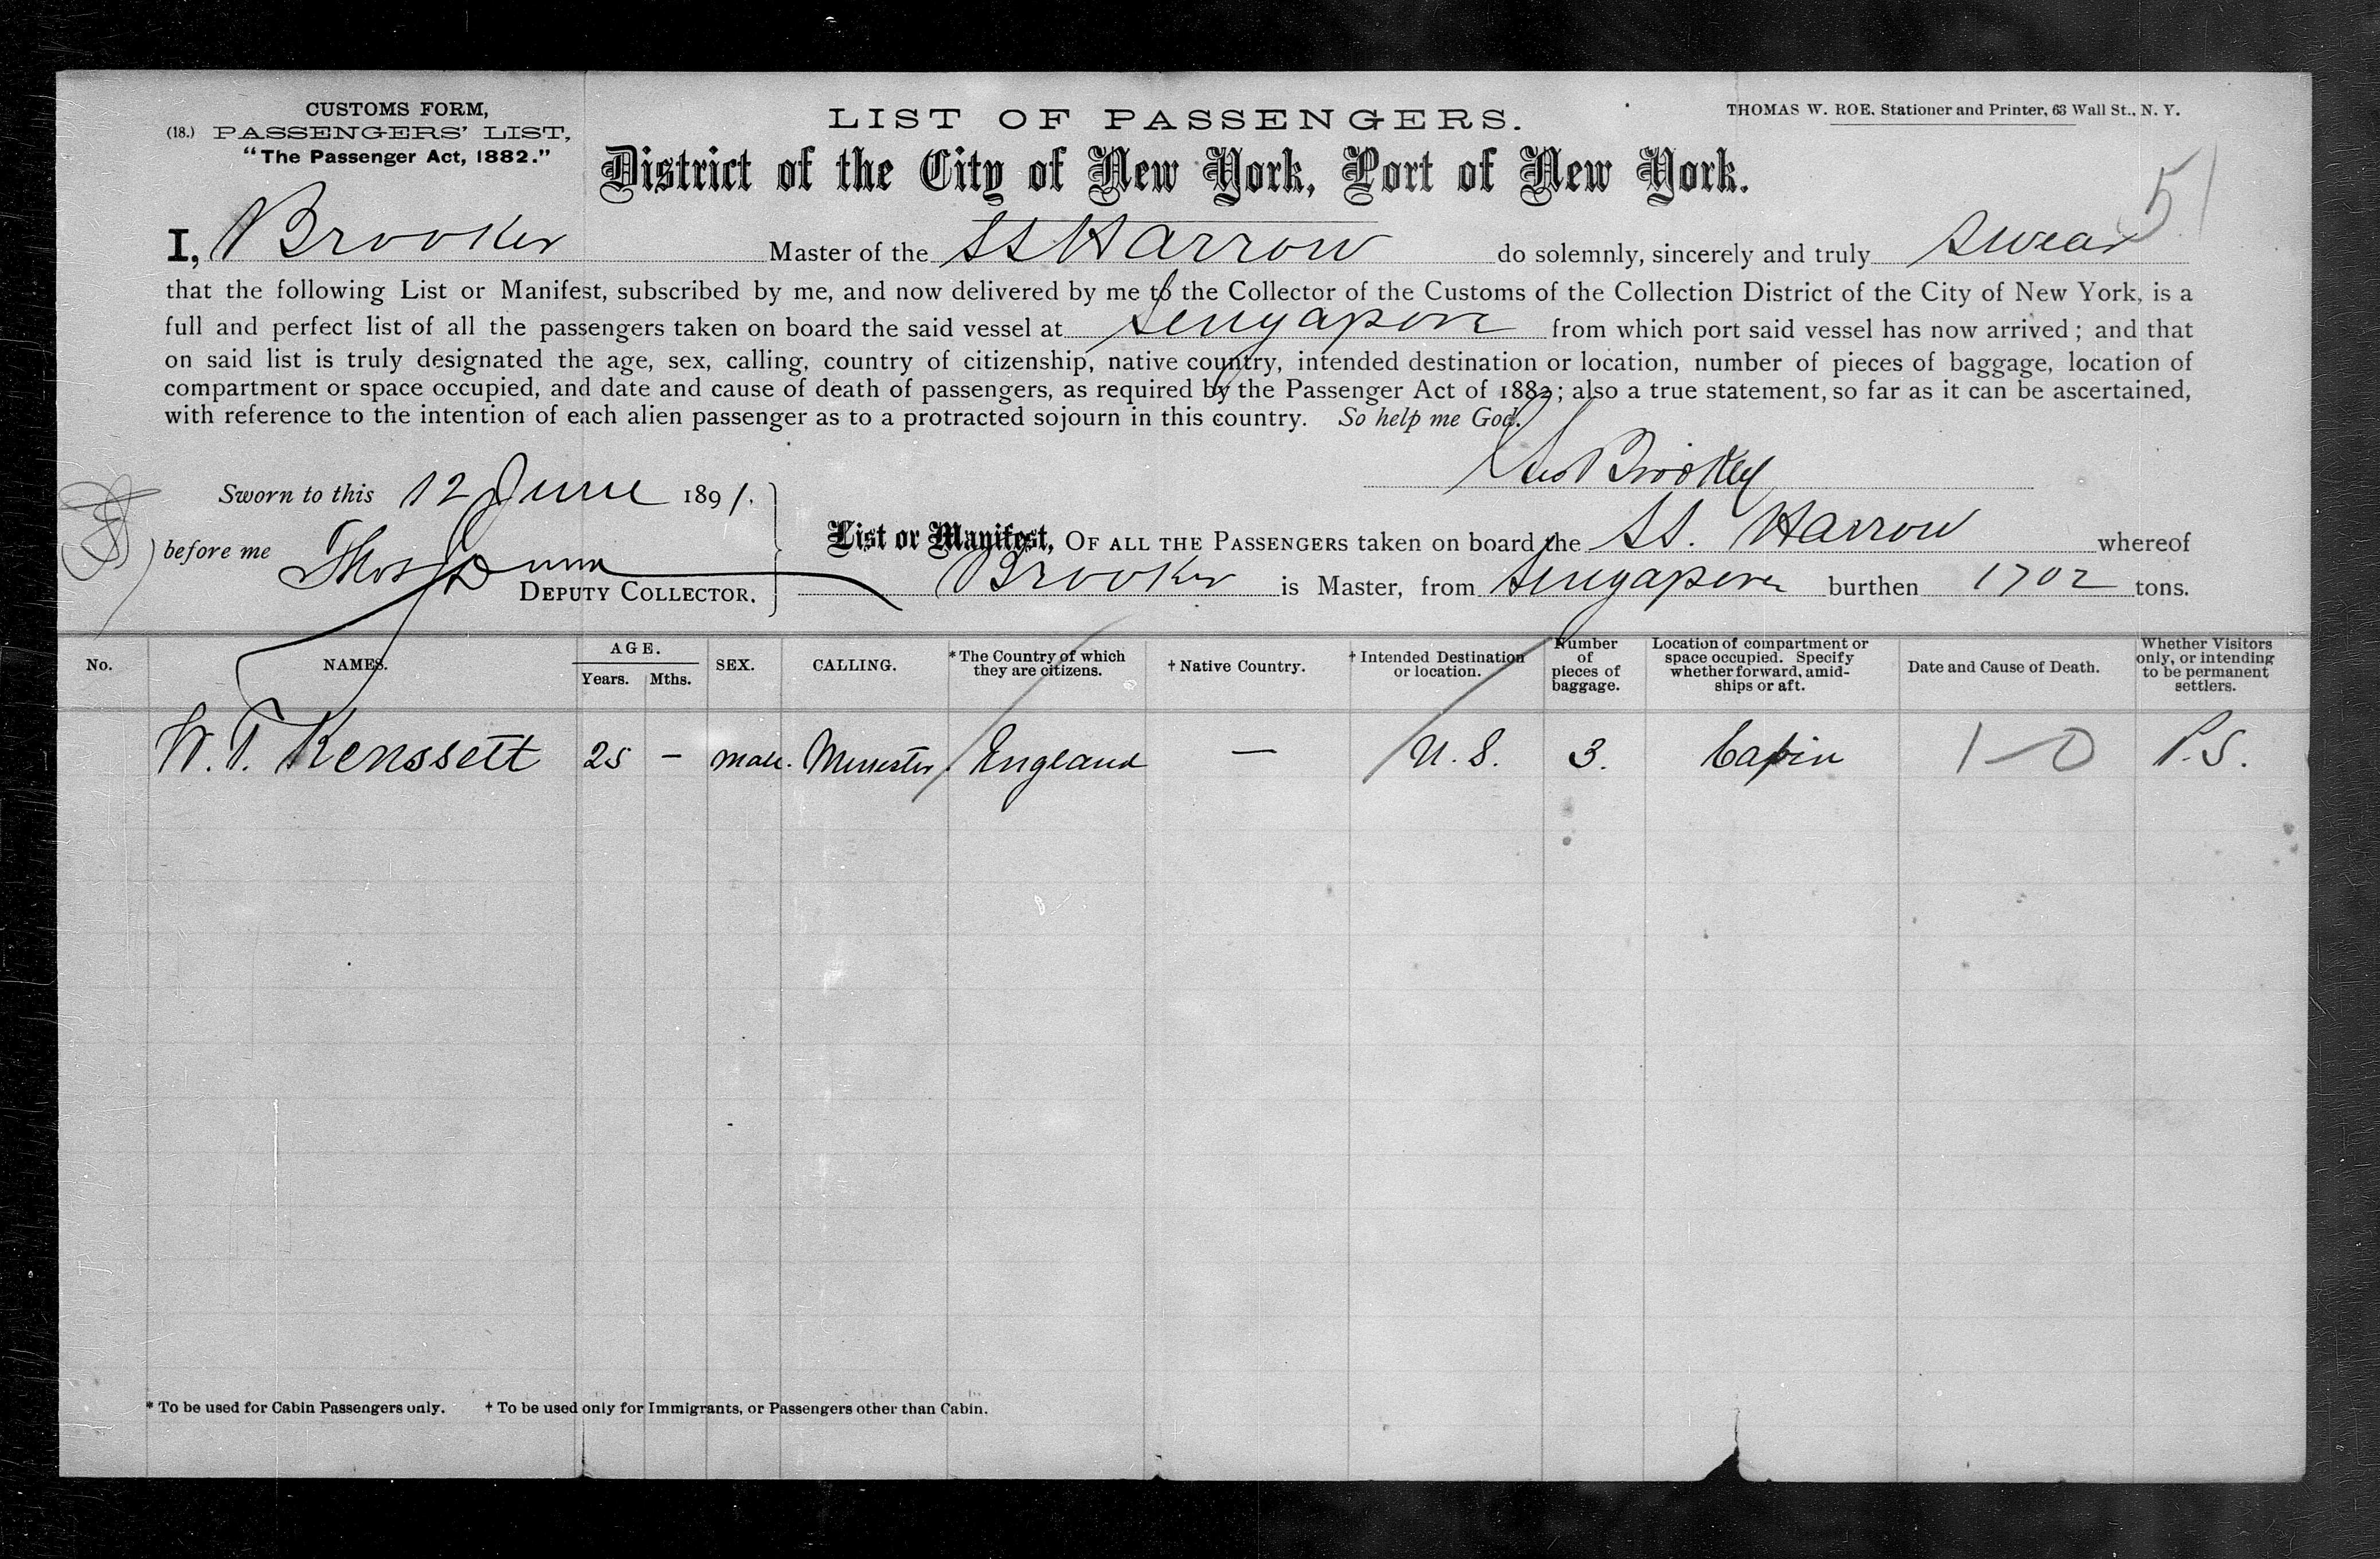 CUSTOMS FORM,
(18.) PASSENGERS' LIST,
"The Passenger Act, 1882."
LIST OF PASSENGERS.
THOMAS W. ROE, Stationer and Printer, 63 Wall St., N. Y.
District of the City of New York, Port of New York.
51
I, Brooker Master of the SS Harrow do solemnly, sincerely and truly swear
that the following List or Manifest, subscribed by me, and now delivered by me to the Collector of the Customs of the Collection District of the City of New York, is a
full and perfect list of all the passengers taken on board the said vessel at Singapore from which port said vessel has now arrived; and that
on said list is truly designated the age, sex, calling, country of citizenship, native country, intended destination or location, number of pieces of baggage, location of
compartment or space occupied, and date and cause of death of passengers, as required by the Passenger Act of 1882; also a true statement, so far as it can be ascertained,
with reference to the intention of each alien passenger as to a protracted sojourn in this country. So help me God.
Geo Brooker
Sworn to this 12 June 1891.
before me Thos Dunn
DEPUTY COLLECTOR.
List or Manifest, OF ALL THE PASSENGERS taken on board the SS. Harrow whereof
Brooker is Master, from Singapore burthen 1702 tons.
No. NAMES. AGE. Years. Mths. SEX. CALLING. * The Country of which they are citizens. † Native Country. † Intended Destination or location. Number of pieces of baggage. Location of compartment or space occupied. Specify whether forward, amidships or aft. Date and Cause of Death. Whether Visitors only, or intending to be permanent settlers.
W. T. Kenssett 25 – male. Minister. England — U. S. 3. Cabin 1–0 P.S.
* To be used for Cabin Passengers only. † To be used only for Immigrants, or Passengers other than Cabin.